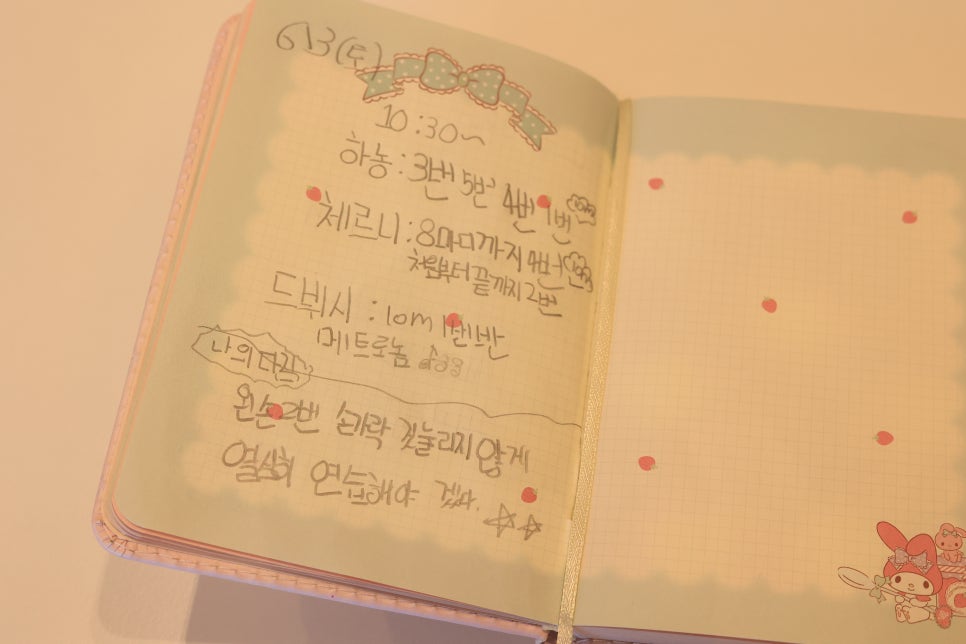 6/3(토)
10:30~
하농: 3번 5번 4번 1번
체르니: 8마디까지 4번
처음부터 끝까지 2번
드뷔시: 10m 1번반
메트로놈
나의 다짐
왼손 2번 손가락 짓눌리지 않게
열심히 연습해야 겠다.